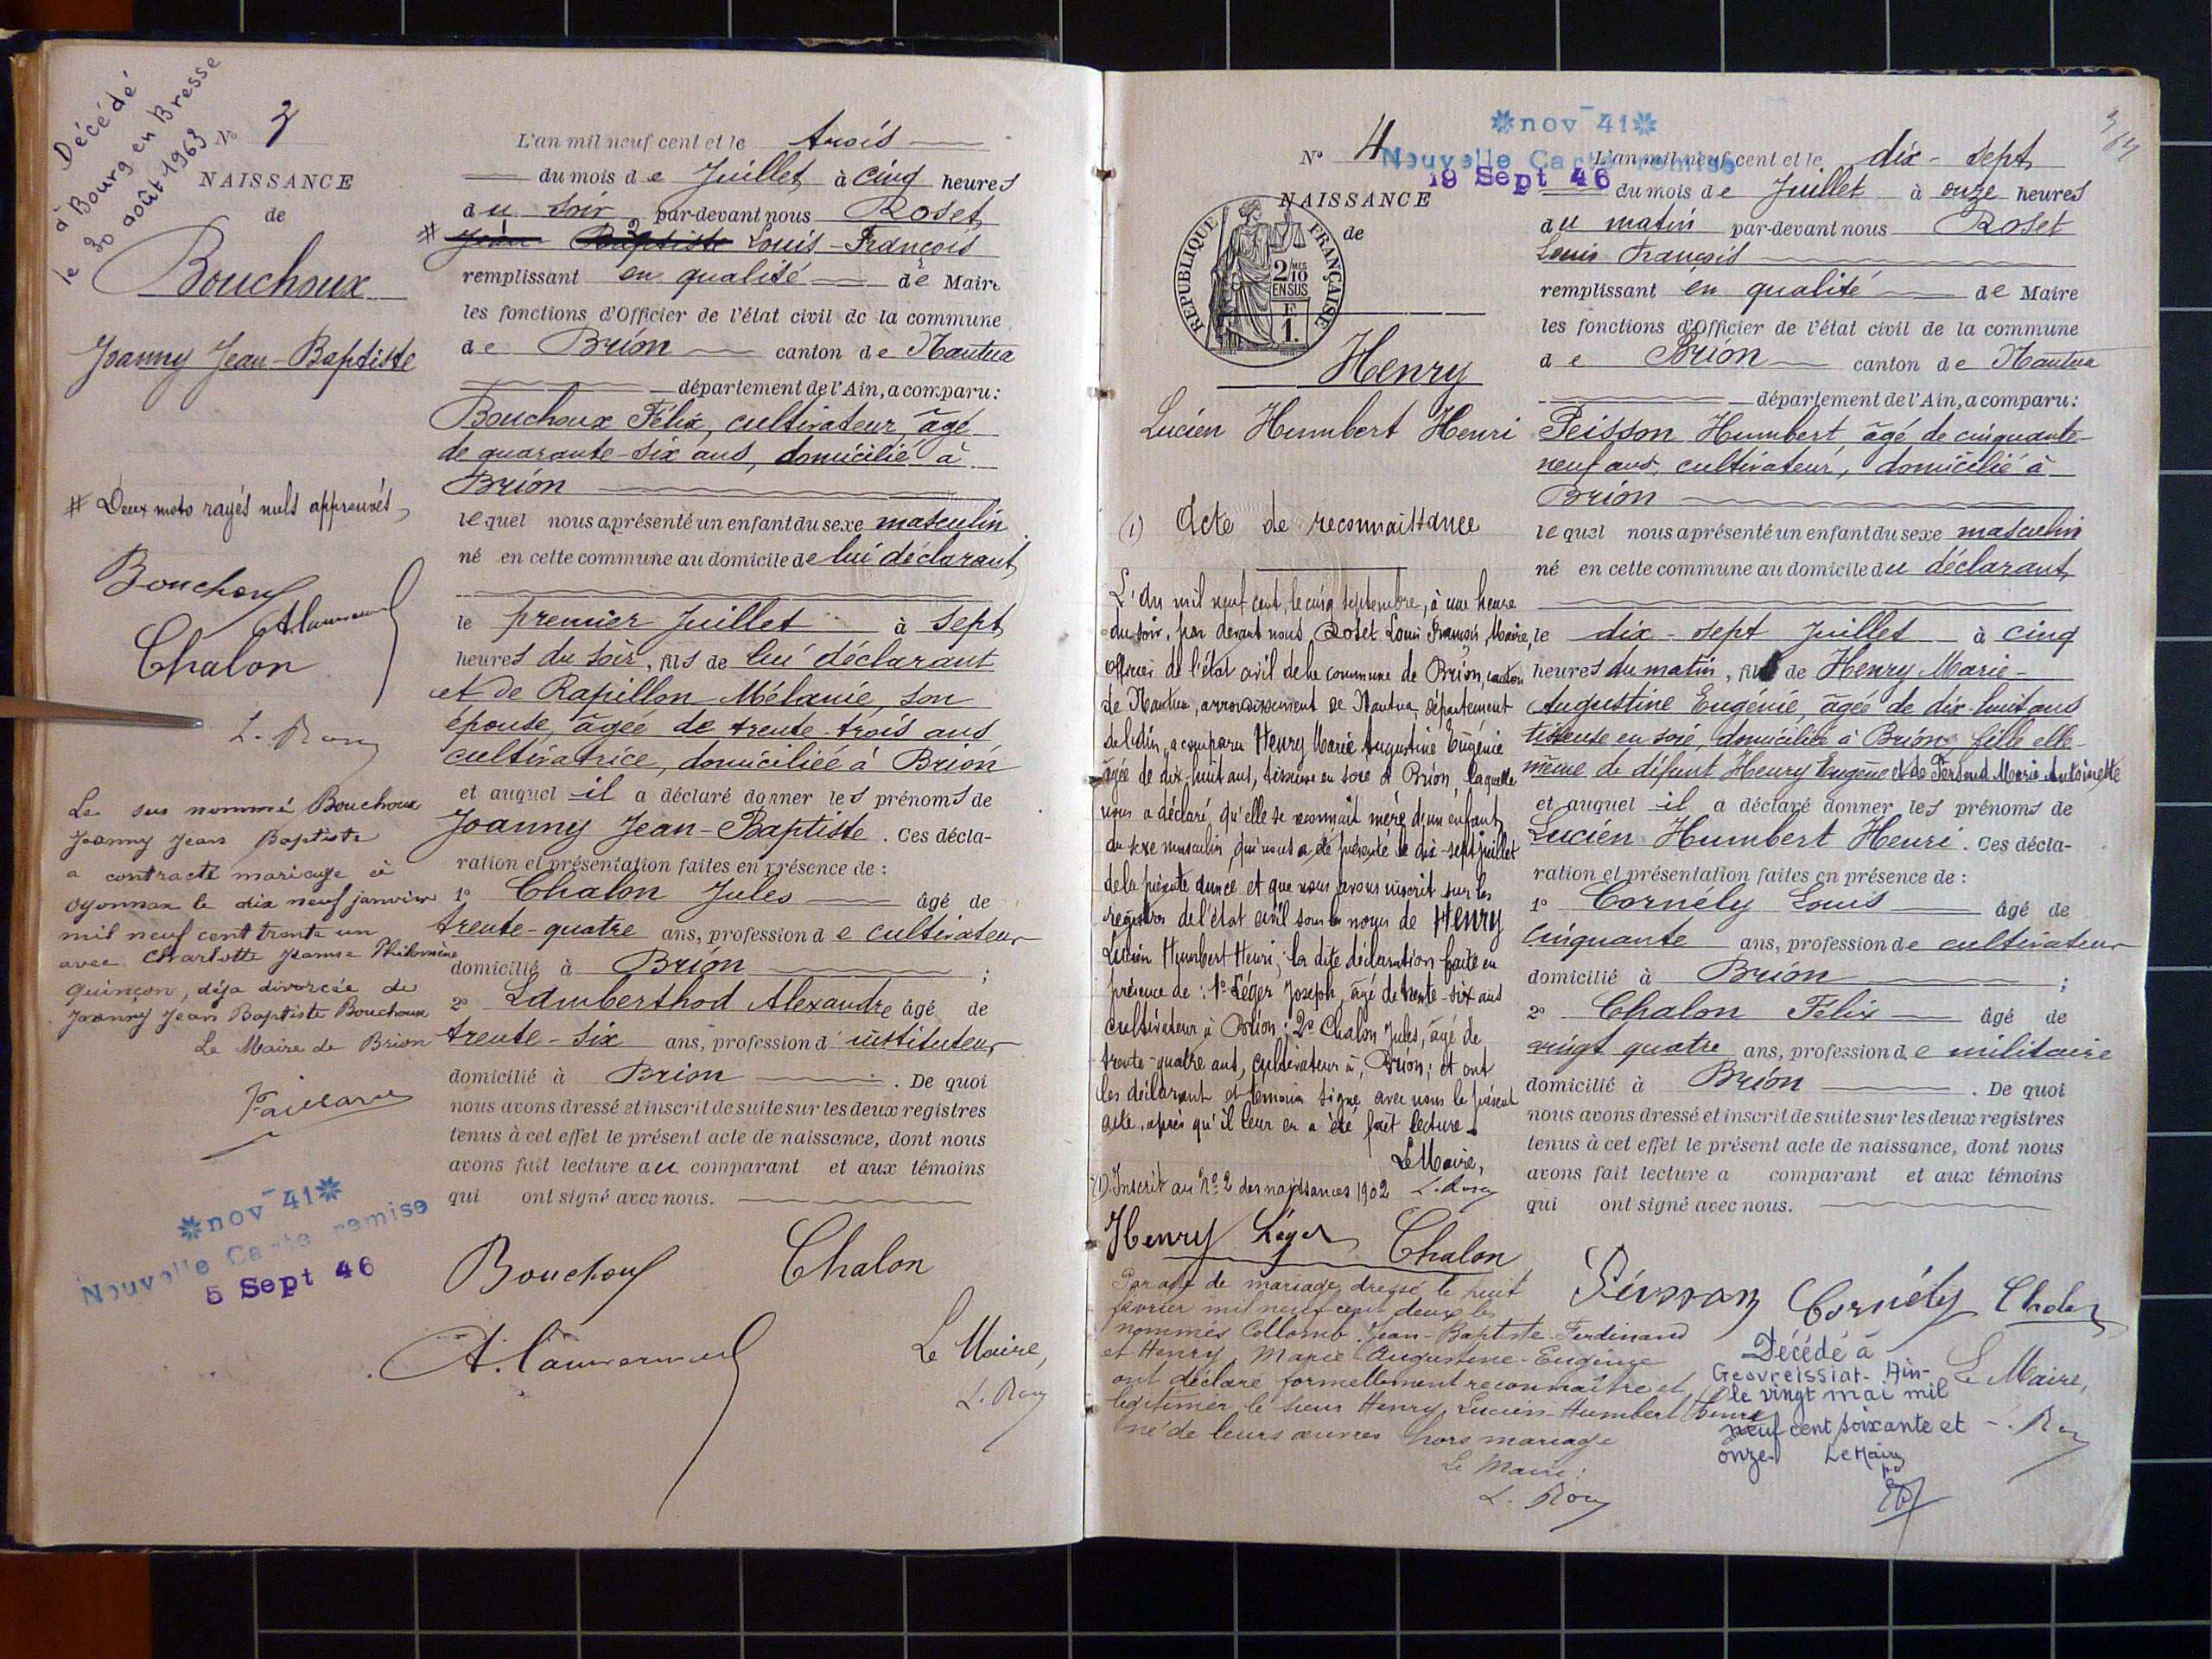 Décédé
à Bourg en Bresse
le 30 août 1963
No 3
NAISSANCE
de
Bouchoux
Joanny Jean-Baptiste
# Deux mots rayés nuls approuvés
Bouchoux
Chalon
Le sus nommé Bouchoux
Joanny Jean Baptiste
a contracté mariage à
Oyonnax le dix neuf janvier
mil neuf cent trente un
avec Charlotte Jeanne Philomène
Quinçon, déja divorcée de
Joanny Jean Baptiste Bouchoux
Le Maire de Brion
nov 41
Nouvelle Carte remise
5 Sept 46
L'an mil neuf cent et le trois
du mois de Juillet à cinq heures
du soir par-devant nous Roset
# Jean Baptiste Louis-François
remplissant en qualité de Maire
les fonctions d'Officier de l'état civil de la commune
de Brion canton de Nantua
département de l'Ain, a comparu:
Bouchoux Félix, cultivateur, âgé
de quarante-six ans, domicilié à
Brion
lequel nous a présenté un enfant du sexe masculin
né en cette commune au domicile de lui déclarant
le premier Juillet à sept
heures du soir, fils de lui déclarant
et de Rapillon Mélanie, son
épouse, âgée de trente-trois ans
cultivatrice, domiciliée à Brion
et auquel il a déclaré donner les prénoms de
Joanny Jean-Baptiste. Ces décla-
ration et présentation faites en présence de :
1° Chalon Jules âgé de
trente-quatre ans, profession de cultivateur
domicilié à Brion ;
2° Lamberthod Alexandre âgé de
trente-six ans, profession d'instituteur
domicilié à Brion. De quoi
nous avons dressé et inscrit de suite sur les deux registres
tenus à cet effet le présent acte de naissance, dont nous
avons fait lecture au comparant et aux témoins
qui ont signé avec nous.
Bouchoux Chalon
Le Maire,
nov 41
Nouvelle Carte remise
19 Sept 46
No 4
NAISSANCE
de
REPUBLIQUE FRANÇAISE
2/10 MES
EN SUS
F
1.
Henry
Lucien Humbert Henri
(1) Acte de reconnaissance
L'an mil neuf cent, le cinq septembre, à une heure
du soir, par devant nous Roset Louis François, Maire,
officier de l'état civil de la commune de Brion, canton
de Nantua, arrondissement de Nantua, département
de l'Ain, a comparu Henry Marie Augustine Eugénie
âgée de dix-huit ans, tisseuse en soie à Brion, laquelle
nous a déclaré qu'elle se reconnait mère d'un enfant
du sexe masculin, qui nous a été présenté le dix-sept juillet
de la présente année et que nous avons inscrit sur les
registres de l'état civil sous les noms de Henry
Lucien Humbert Henri; la dite déclaration faite en
présence de : 1° Léger Joseph, âgé de trente-six ans
cultivateur à Brion; 2° Chalon Jules, âgé de
trente-quatre ans, cultivateur à Brion; et ont
les déclarant et témoins signé avec nous le présent
acte, après qu'il leur en a été fait lecture.
Le Maire,
(1) Inscrit au No 2 des naissances 1902
Henry Léger Chalon
Par acte de mariage dressé le huit
février mil neuf cent deux les
nommés Collomb Jean-Baptiste Ferdinand
et Henry Marie Augustine-Eugénie
ont déclaré formellement reconnaître et
légitimer le sieur Henry Lucien-Humbert Henri
né de leurs œuvres hors mariage
Le Maire :
L'an mil neuf cent et le dix-sept
du mois de Juillet à onze heures
du matin par-devant nous Roset
Louis François
remplissant en qualité de Maire
les fonctions d'Officier de l'état civil de la commune
de Brion canton de Nantua
département de l'Ain, a comparu:
Peisson Humbert âgé de cinquante-
neuf ans, cultivateur, domicilié à
Brion
lequel nous a présenté un enfant du sexe masculin
né en cette commune au domicile du déclarant
le dix-sept Juillet à cinq
heures du matin, fils de Henry Marie-
Augustine Eugénie, âgée de dix-huit ans
tisseuse en soie, domiciliée à Brion, fille elle-
même de défunt Henry Eugène et de Marie Antoinette
et auquel il a déclaré donner les prénoms de
Lucien Humbert Henri. Ces décla-
ration et présentation faites en présence de :
1° Cornély Louis âgé de
cinquante ans, profession de cultivateur
domicilié à Brion ;
2° Chalon Félix âgé de
vingt quatre ans, profession de militaire
domicilié à Brion. De quoi
nous avons dressé et inscrit de suite sur les deux registres
tenus à cet effet le présent acte de naissance, dont nous
avons fait lecture a comparant et aux témoins
qui ont signé avec nous.
Peisson Cornély Chalon
Le Maire,
Décédé à
Geovreissiat-Ain-
le vingt mai mil
neuf cent soixante et
onze. Le Maire